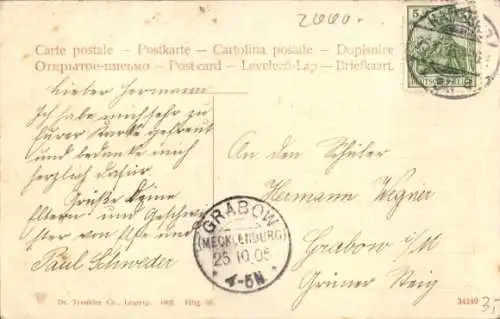 2660.-
Carte postale – Postkarte – Cartolina postale – Dopisnice
Открытое письмо – Post card – Levelező-Lap – Briefkaart.
5
Lieber Hermann
Ich habe mich sehr zu
Eurer Karte gefreut
und bedanke mich
herzlich dafür.
Grüße Deine
Eltern und Geschwi-
ster von
Paul Schweder
An den Schüler
Hermann Wegner
Grabow i/M
Grüner Steig
GRABOW
(MECKLENBURG)
25.10.05
4-5N.
Dr. Trenkler Co., Leipzig. 1905
34249
3,-